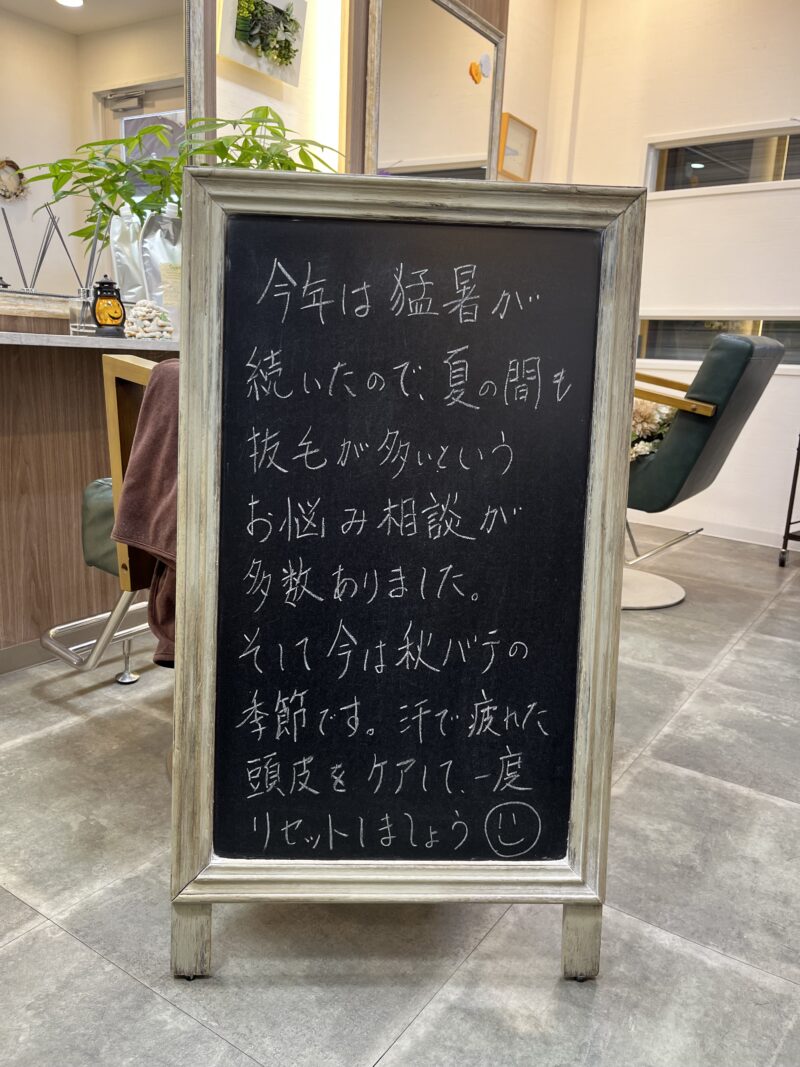 今年は猛暑が
続いたので、夏の間も
抜毛が多いという
お悩み相談が
多数ありました。
そして今は秋バテの
季節です。汗で疲れた
頭皮をケアして、一度
リセットしましょう